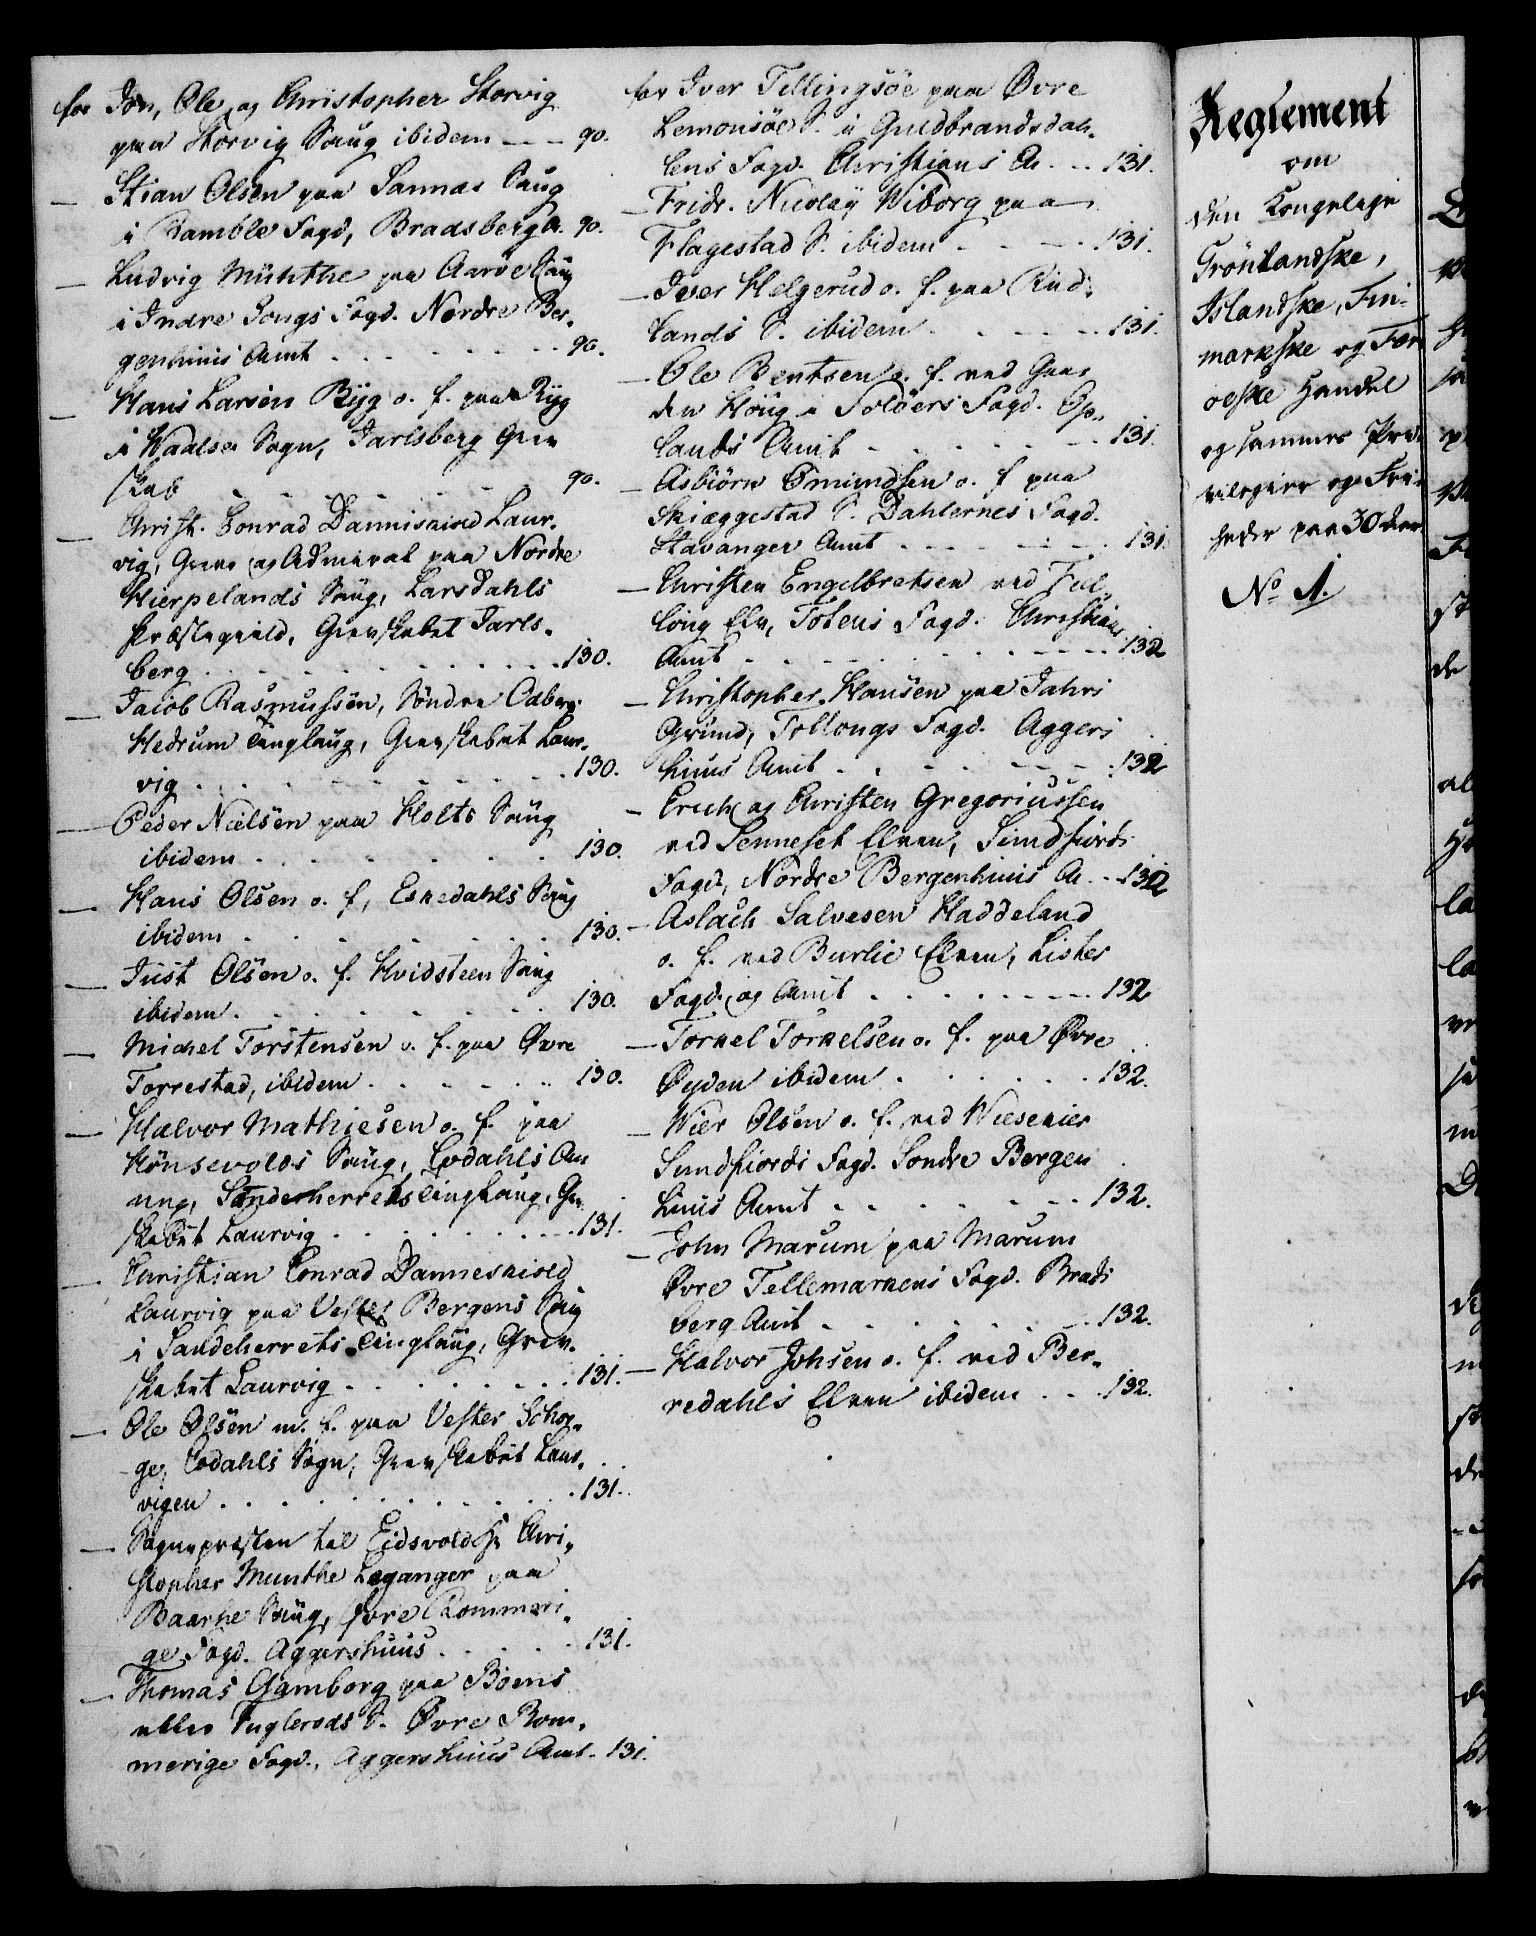 for Jon, Ole og Christopher Storvig
paa Storvig Saug ibidem - - - 90.
— Stian Olsen paa Sannas Saug
i Bamble Fogd, Bradsberg A. 90.
— Ludvig Münthe paa Aarve Saug
i Indre Songs Fogd. Nordre Ber,
genhuus Amt . . . . . . . 90.
— Hans Larsen Ryg o. f. paa Ryg
i Waalse Sogn, Jarlsberg Grev
skab . . . . . . . 90.
— Christ. Conrad Dannisciold Laur,
vig, Greve og Admiral paa Nordre
Hierpelands Saug, Larsdahls
Præstegield, Grevskabet Jarls,
berg . . . . . . . 130.
— Jacob Rasmussen, Søndre Odberg
Hedrum Tinglaug, Grevskabet Laur,
vig . . . . . . . 130.
— Peder Nielsen paa Holts Saug
ibidem . . . . . . . 130.
— Hans Olsen o. f, Eskedahls Saug
ibidem . . . . . . . 130.
— Just Olsen o. f. Hvidsteen Saug
ibidem . . . . . . . 130.
— Michel Torstensen o. f. paa Øvre
Torrestad, ibidem . . . . . . 130.
— Halvor Mathiesen o. f. paa
Hönsevolds Saug, Lodahls An
nex, Sanderherrets Tinglaug, Grev
skabet Laurvig . . . . . . . 131.
— Christian Conrad Danneskiold
Laurvig paa Vester Bergens Saug
i Sandeherrets Tinglaug, Grev.
skabet Laurvig . . . . . . . 131.
— Ole Olsen m. f. paa Vester Schog,
ge, Codahls Sogn, Grevskabet Laur,
vigen . . . . . . . 131.
— Sognepræsten til Eidsvold Hr. Chri,
stopher Munthe Leganger paa
Baarhe Saug, Øvre Rommeri,
ge Fogd. Aggershuus . . . . . 131.
— Thomas Gamborg paa Böens
eller Fuglerods S. Øvre Rom,
merige Fogd., Aggershuus Amt. 131.
for Iver Tellingsöe paa Øvre
Lemonsöe S. i Guldbrandsdah,
lens Fogd. Christians A. . . 131.
— Fridr. Nicolay Wiborg paa
Flagestad S. ibidem . . . . . 131.
— Iver Helgerud o. f. paa Rud,
lands S. ibidem . . . . . . 131.
— Ole Bentsen o. f. ved Gaar
den Houg i Soløers Fogd. Op,
lands Amt . . . . . . 131.
— Asbiörn Omundsen o. f paa
Skiæggestad S. Dahlernes Fogd.
Stavanger Amt . . . . . . 131.
— Christen Engelbretsen ved Ful,
long Elv, Totens Fogd. Christians
Amt . . . . . . . 132
— Christopher Hansen paa Jahrs
Grund, Follougs Fogd. Aggers
huus Amt . . . . . . 132
— Erich og Christen Gregoriussen
ved Senneset Elven, Sundfiords
Fogd, Nordre Bergenhuus A. . 132
— Aslach Salvesen Haddeland
o. f. ved Burlie Elven, Lister
Fogd. og Amt . . . . . . 132
— Torkel Torkelsen o. f. paa Øvre
Øyden ibidem . . . . . . 132.
— Wier Olsen o. f. ved Wiesenier
Sundfiords Fogd. Sondre Bergen
huus Amt . . . . . . 132.
— John Marum paa Marum
Øvre Tellemarkens Fogd. Brads
berg Amt . . . . . . 132.
— Halvor Johsen o. f. ved Ber,
redahls Elven ibidem . . . 132.
Reglement
om
den Kongelige
Grönlandske,
Islandske, Fin-
markske og Fær
öeske Handel
og sammes Pri
vilegier og Fri
heder paa 30 Aar
No. 1.